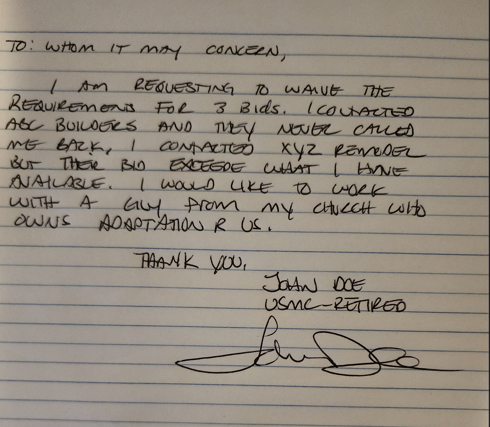 TO: WHOM IT MAY CONCERN,
I AM REQUESTING TO WAIVE THE
REQUIREMENTS FOR 3 BIDS. I CONTACTED
ABC BUILDERS AND THEY NEVER CALLED
ME BACK, I CONTACTED XYZ REMODEL
BUT THEIR BID EXCEEDE WHAT I HAVE
AVAILABLE. I WOULD LIKE TO WORK
WITH A GUY FROM MY CHURCH WHO
OWNS ADAPTATION R US.
THANK YOU,
JOHN DOE
USMC-RETIRED
John Doe